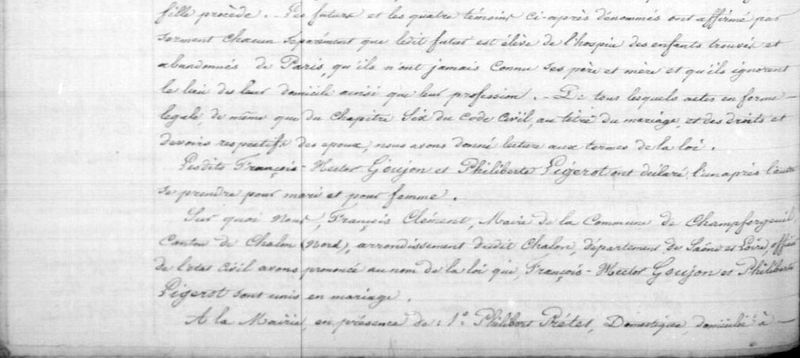 fille procède. Les futurs et les quatre témoins ci-après dénommés ont affirmé par
serment chacun séparément que ledit futur est élève de l'hospice des enfants trouvés et
abandonnés de Paris, qu'ils n'ont jamais connu ses père et mère et qu'ils ignorent
le lieu des leur domicile ainsi que leur profession. — De tous lesquels actes en forme
légale, de même que du Chapitre Six du Code Civil, au titre du mariage, et des droits et
devoirs respectifs des époux, nous avons donné lecture aux termes de la loi.
Lesdits François-Hector Goujon et Philiberte Pigerot ont déclaré l'un après l'autre
se prendre pour mari et pour femme.
Sur quoi Nous, François Clément, Maire de la Commune de Champforgeuil,
Canton de Chalon (Nord), arrondissement dudit Chalon, département de Saône et Loire, officier
de l'état civil avons prononcé au nom de la loi que, François-Hector Goujon et Philiberte
Pigerot sont unis en mariage.
A la Mairie, en présence de : 1° Philibert Prétet, Domestique, domicilié à —